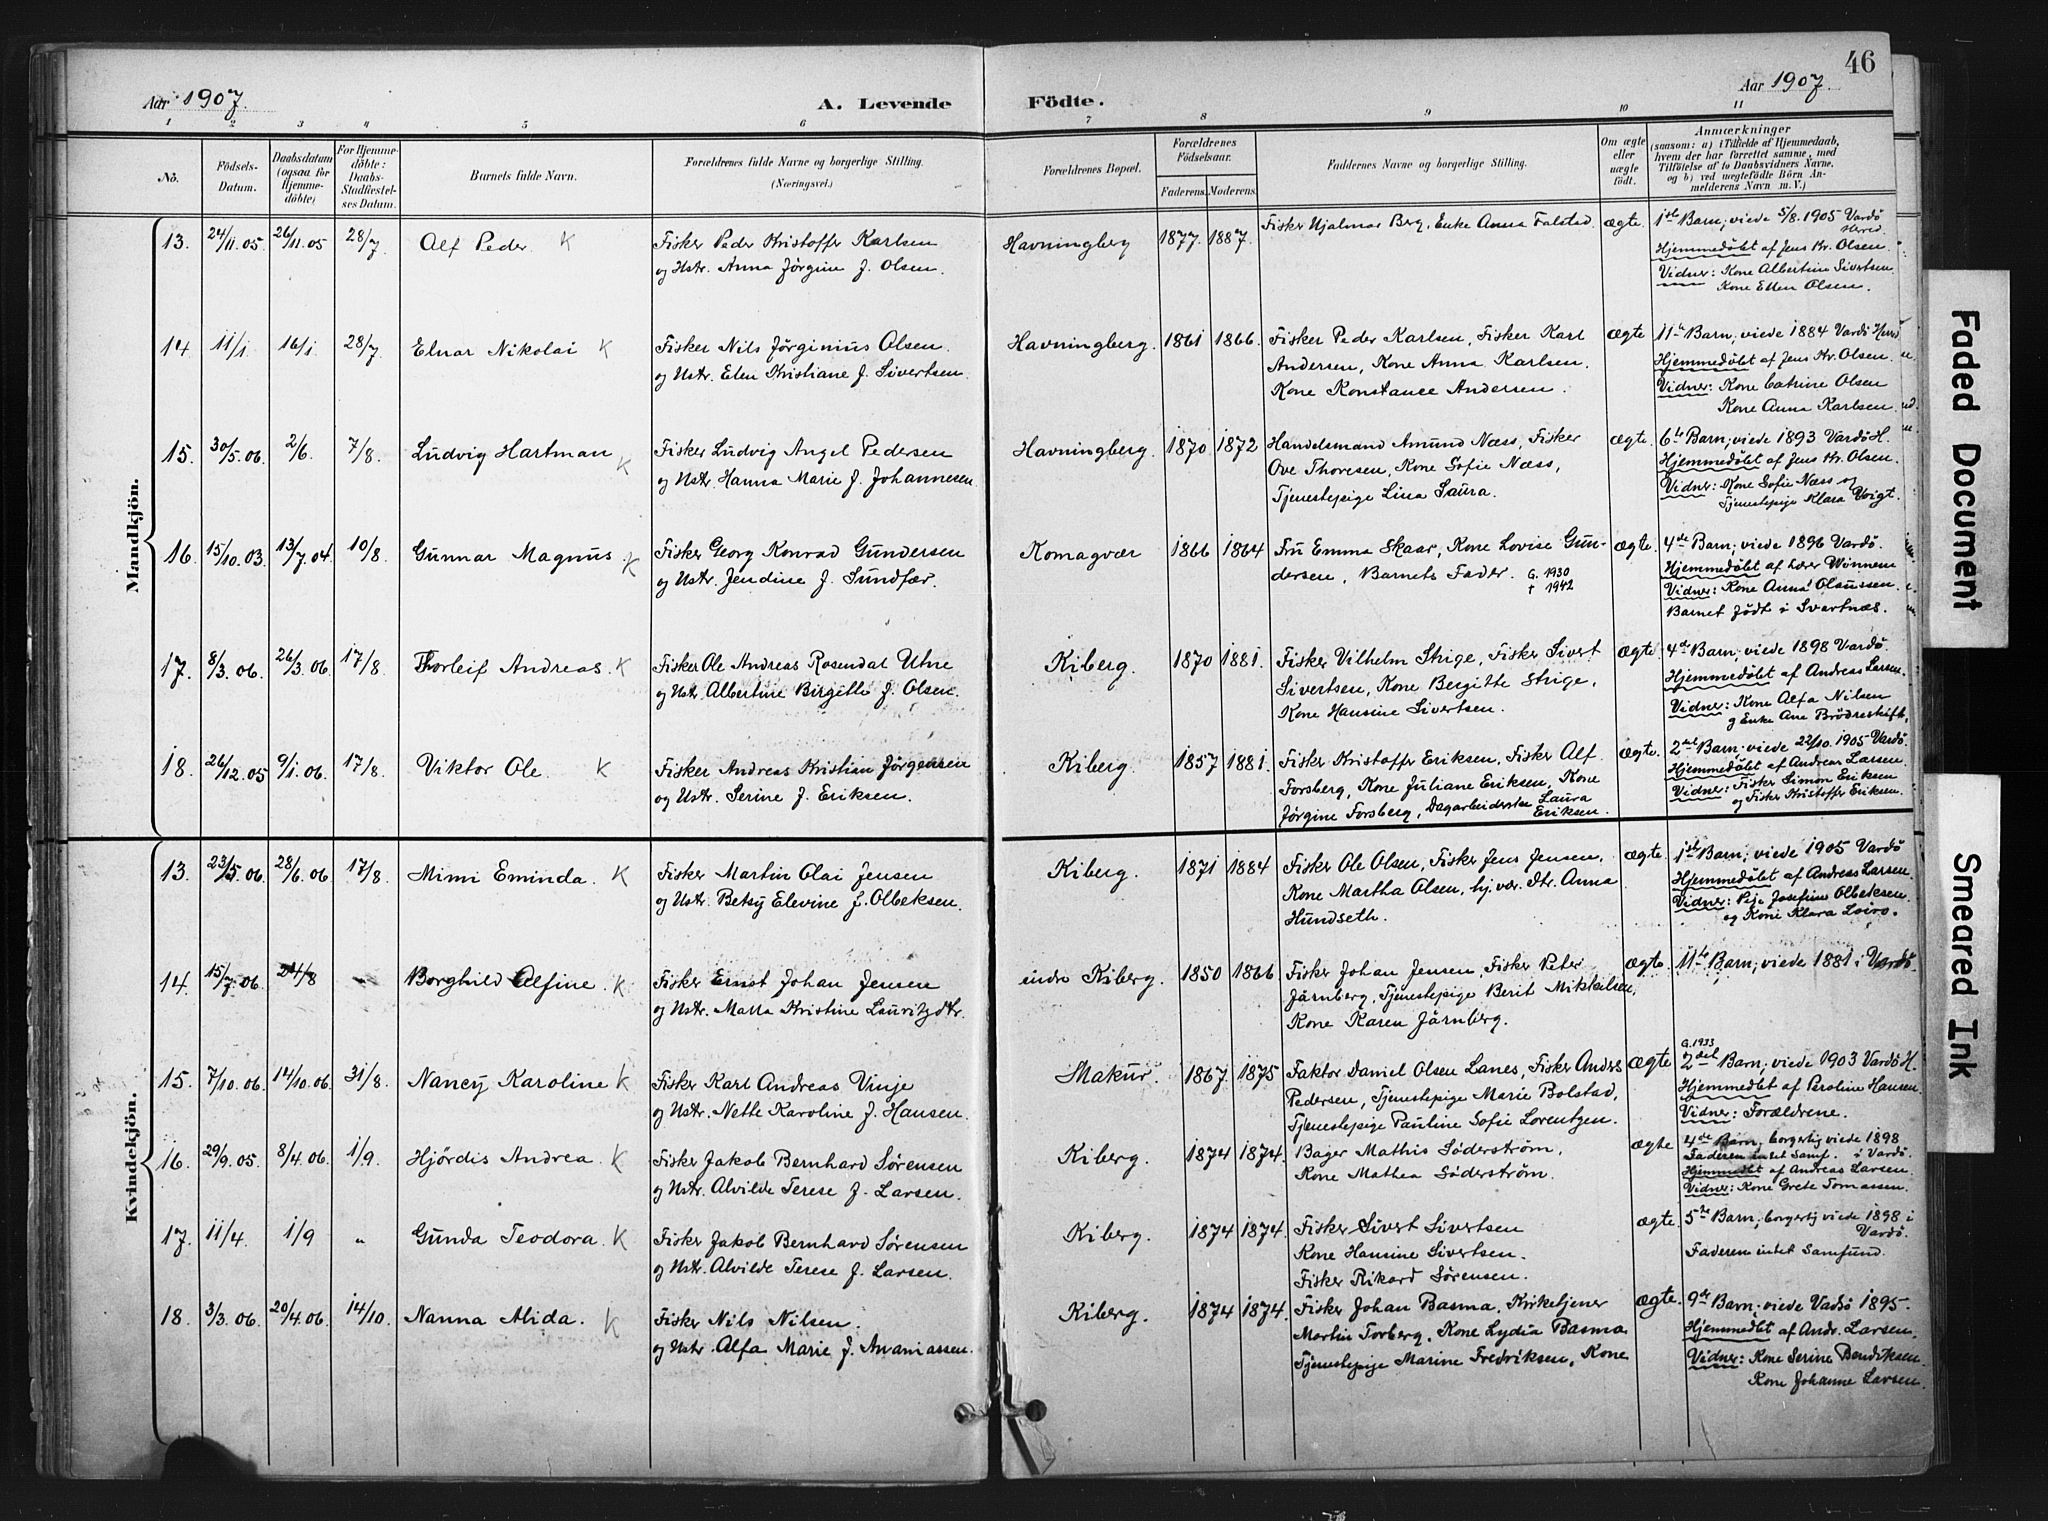 46
Aar 1907.
A. Levende
Födte.
Aar 1907.
1 2 3 4 5 6 7 8 9 10 11
No.
Födsels-
Datum.
Daabsdatum
(ogsaa for
Hjemme-
döbte)
For Hjemme-
döbte:
Daabs-
Stadfæstel-
ses Datum.
Barnets fulde Navn.
Forældrenes fulde Navne og borgerlige Stilling.
(Næringsvei.)
Forældrenes Bopæl.
Forældrenes
Födselsaar.
Faderens. Moderens.
Faddernes Navne og borgerlige Stilling.
Om ægte
eller
uægte
født.
Anmærkninger
(saasom: a) i Tilfælde af Hjemmedaab,
hvem der har forrettet samme, med
Tilföielse af to Daabsvidners Navne,
og b) ved uægtefödte Börn An-
melderens Navn m. V.)
Mandkjön.
13. 24/11.05 26/11.05 28/7 Alf Peder K
Fisker Peder Kristoffer Karlsen
og Hstr. Anna Jørgine f. Olsen.
Havningberg 1877. 1887.
Fisker Hjalmar Berg, Enke Anna Falstad.
ægte.
1ste Barn; viede 5/8.1905 Vardö
Herred
Hjemmedøbt af Jens Kr. Olsen.
Vidner: Kone Albertine Sivertsen
Kone Ellen Olsen.
14. 11/1. 16/1. 28/7 Einar Nikolai K
Fisker Nils Jørginius Olsen.
og Hstr. Elen Kristiane f. Sivertsen.
Havningberg. 1861 1866.
Fisker Peder Karlsen, Fisker Karl
Andersen, Kone Anna Karlsen.
Kone Konstance Andersen.
ægte
11te Barn, viede 1884 Vardö Herred
Hjemmedøbt af Jens Kr. Olsen.
Vidner: Kone Catrine Olsen
Kone Anna Karlsen.
15. 30/5.06. 2/6. 7/8. Ludvig Hartman K
Fisker Ludvig Angel Pedersen
og Hstr. Hanna Marie f. Johannesen.
Havningberg. 1870 1872
Handelsmand Amund Næss, Fisker
Ove Thoresen, Kone Sofie Næss,
Tjenestepige Lina Saura.
ægte.
6te Barn; viede 1893 Vardö H.
Hjemmedøbt af Jens Kr. Olsen.
Vidner: Kone Sofie Næss og
Tjenestepige Klara Voigt.
16. 15/10.03. 13/7.04. 10/8. Gunnar Magnus K
Fisker Georg Konrad Gundersen
og Hstr. Jendine f. Sundfær.
Komagvær 1866 1864
Fru Emma Skaar, Kone Lovise Gun-
dersen, Barnets Fader. G. 1930
† 1942
ægte.
4de Barn; viede 1896 Vardö.
Hjemmedøbt af Lærer Wønnem
Vidner: Kone Anna Olaussen.
Barnet født i Svartnæs.
17. 8/3.06. 26/3.06 17/8 Thorleif Andreas. K
Fisker Ole Andreas Rosendal Utne
og Hstr. Albertine Birgitte f. Olsen.
Kiberg. 1870 1881.
Fisker Vilhelm Strige, Fisker Sivert
Sivertsen, Kone Bergitte Strige,
Kone Hansine Sivertsen.
ægte.
4de Barn; viede 1898 Vardö.
Hjemmedøbt af Andreas Larsen.
Vidner: Kone Alfa Nilsen
og Enke Ane Brödreskift.
18. 26/12.05 9/1.06. 17/8. Viktor Ole. K
Fisker Andreas Kristian Jørgensen
og Hstr. Serine f. Eriksen.
Kiberg. 1857 1881.
Fisker Kristoffer Eriksen, Fisker Alf
Forsberg, Kone Juliane Eriksen, Kone
Jørgine Forsberg, Dagarbeiderske Laura
Eriksen.
ægte.
2det Barn; viede 22/10.1905 Vardö.
Hjemmedøbt af Andreas Larsen.
Vidner: Fisker Simon Eriksen
og Fisker Kristoffer Eriksen.
Kvindekjön.
13. 23/5.06. 28/6.06 17/8 Mimi Eminda. K
Fisker Martin Olai Jensen
og Hstr. Betsy Elevine f. Olbeksen.
Kiberg. 1871 1884
Fisker Ole Olsen, Fisker Jens Jensen,
Kone Martha Olsen, hj.vær. Dtr. Anna
Hundseth.
ægte.
1ste Barn; viede 1905 Vardö
Hjemmedøbt af Andreas Larsen.
Vidner: Pige Josefine Olbeksen
og Kone Klara Loiro.
14. 15/7.06. 24/8 Borghild Alfine. K
Fisker Ernst Johan Jensen
og Hstr. Malla Kristine Lauritzdtr.
indre Kiberg. 1850 1866
Fisker Johan Jensen, Fisker Peter
Järnberg, Tjenestepige Berit Mikkelsen,
Kone Karen Järnberg.
ægte.
11te Barn; viede 1881 i Vardö.
15. 7/10.06. 14/10.06. 31/8. Nancy Karoline K
Fisker Karl Andreas Vinje
og Hstr. Nette Karoline f. Hansen.
Makur. 1867. 1875
Faktor Daniel Olsen Lanes, Fisker Anders
Pedersen, Tjenestepige Marie Bolstad,
Tjenestepige Pauline Sofie Lorentzen.
ægte
G. 1933
2det Barn; viede 1903 Vardö H.
Hjemmedbt af Peroline Hansen.
Vidner: Forældrene.
16. 29/9.05. 8/4.06. 1/9. Hjördis Andrea. K
Fisker Jakob Bernhard Sörensen
og Hstr. Alvilde Terese f. Larsen.
Kiberg. 1874 1874.
Bager Mathis Söderström,
Kone Mathea Söderström.
ægte
4de Barn; borgerlig viede 1898.
Faderen intet Samf. i Vardö.
Hjemmedbt af Andreas Larsen.
Vidner: Kone Grete Tomassen.
17. 11/4. 1/9 " Gunda Teodora. K
Fisker Jakob Bernhard Sörensen
og Hstr. Alvilde Terese f. Larsen.
Kiberg. 1874 1874.
Fisker Sivert Sivertsen
Kone Hansine Sivertsen.
Fisker Rikard Sörensen.
ægte.
5te Barn; borgerlig viede 1898 i
Vardö.
Faderen intet Samfund.
18. 3/3.06. 20/4.06. 14/10. Nanna Alida. K
Fisker Nils Nilsen.
og Hstr. Alfa Marie f. Ananiassen.
Kiberg. 1874 1874.
Fisker Johan Basma, Kirketjener
Martin Torberg, Kone Lydia Basma
Tjenestepige Marine Fredriksen, Kone
ægte.
9de Barn; viede Vardö 1895.
Hjemmedbt af Andr. Larsen.
Vidner: Kone Serine Bendiksen
Kone Johanne Larsen.
Faded Document
Smeared Ink